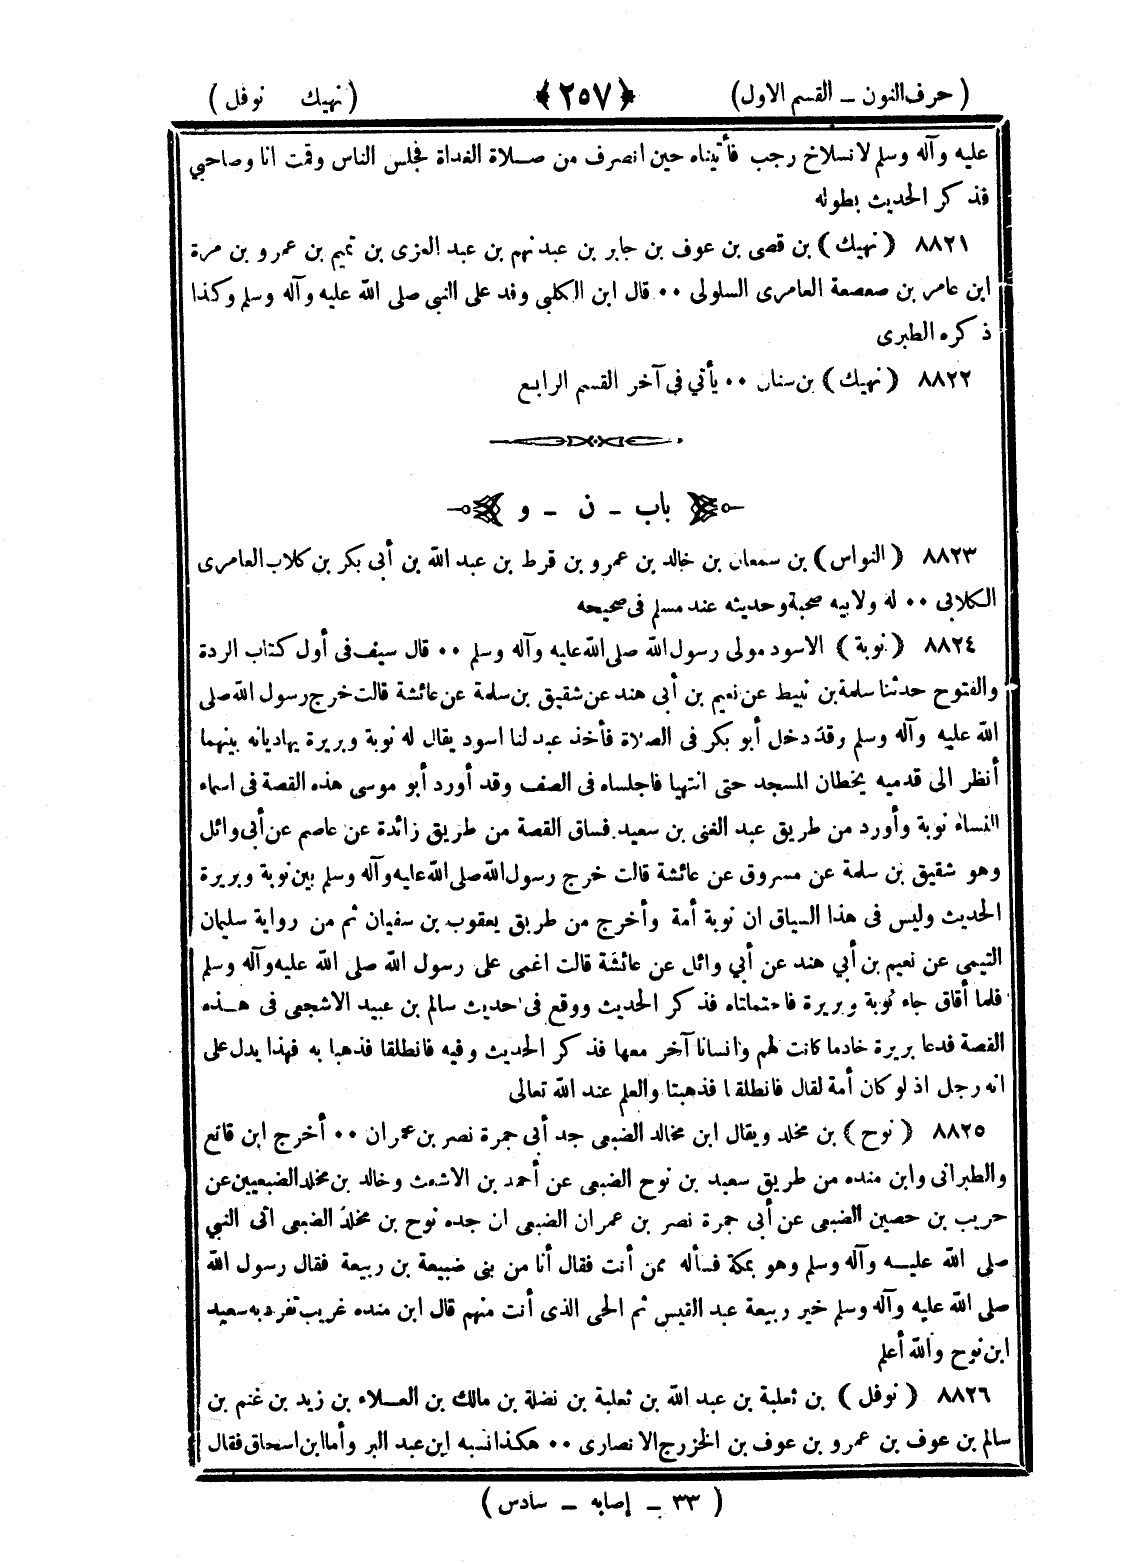 ( حرف النون ــ القسم الاول) ﴿٢٥٧﴾ ( نهيك نوفل )
عليه وآله وسلم لانسلاخ رجب فأتيناه حين انصرف من صلاة الغداة فجلس الناس وقمت انا وصاحبي
فذكر الحديث بطوله
٨٨٢١ ( نهيك ) بن قصى بن عوف بن جابر بن عبد نهم بن عبد العزى بن تميم بن عمرو بن مرة
ابن عامر بن صعصعة العامرى السلولى ٠٠ قال ابن الكلبي وفد على النبي صلى الله عليه وآله وسلم وكذا
ذكره الطبرى
٨٨٢٢ ( نهيك ) بن سنان ٠٠ يأتي فى آخر القسم الرابع
باب ــ ن ــ و
٨٨٢٣ ( النواس ) بن سمعان بن خالد بن عمرو بن قرط بن عبد الله بن أبي بكر بن كلاب العامرى
الكلابي ٠٠ له ولابيه صحبة وحديثه عند مسلم فى صحيحه
٨٨٢٤ ( نوبة ) الاسود مولى رسول الله صلى الله عليه وآله وسلم ٠٠ قال سيف فى أول كتاب الردة
والفتوح حدثنا سلمة بن نبيط عن نعيم بن أبي هند عن شقيق بن سلمة عن عائشة قالت خرج رسول الله صلى
الله عليه وآله وسلم وقد دخل أبو بكر فى الصلاة فأخذ عبد لنا اسود يقال له نوبة وبريرة يهاديانه بينهما
أنظر الى قدميه يخطان المسجد حتى انتهيا فاجلساه فى الصف وقد أورد أبو موسى هذه القصة فى اسماء
النساء نوبة وأورد من طريق عبد الغنى بن سعيد فساق القصة من طريق زائدة عن عاصم عن أبى وائل
وهو شقيق بن سلمة عن مسروق عن عائشة قالت خرج رسول الله صلى الله عليه وآله وسلم بين نوبة وبريرة
الحديث وليس فى هذا السياق ان نوبة أمة وأخرج من طريق يعقوب بن سفيان ثم من رواية سليمان
التيمى عن نعيم بن أبي هند عن أبي وائل عن عائشة قالت اغمى على رسول الله صلى الله عليه وآله وسلم
فلما أفاق جاء نوبة وبريرة فاحتملتاه فذكر الحديث ووقع فى حديث سالم بن عبيد الاشجعى فى هذه
القصة فدعا بريرة خادما كانت لهم وانسانا آخر معها فذكر الحديث وفيه فانطلقا فذهبا به فهذا يدل على
انه رجل اذ لو كان أمة لقال فانطلقا فذهبتا والعلم عند الله تعالى
٨٨٢٥ ( نوح ) بن مخلد ويقال ابن مخالد الضبعى جد أبي جمرة نصر بن عمران ٠٠ أخرج ابن قانع
والطبرانى وابن منده من طريق سعيد بن نوح الضبعى عن أحمد بن الاشعث وخالد بن مخلد الضبعيين عن
حريب بن حصين الضبعى عن أبي جمرة نصر بن عمران الضبعى ان جده نوح بن مخلد الضبعى اتى النبي
صلى الله عليه وآله وسلم وهو بمكة فسأله ممن أنت فقال أنا من بنى ضبيعة بن ربيعة فقال رسول الله
صلى الله عليه وآله وسلم خير ربيعة عبد القيس ثم الحى الذى أنت منهم قال ابن منده غريب تفرد به سعيد
ابن نوح والله أعلم
٨٨٢٦ ( نوفل ) بن ثعلبة بن عبد الله بن ثعلبة بن نضلة بن مالك بن العلاء بن زيد بن غنم بن
سالم بن عوف بن عمرو بن عوف بن الخزرج الانصارى ٠٠ هكذا نسبه ابن عبد البر وأما ابن اسحاق فقال
( ٣٣ ــ إصابه ــ سادس )